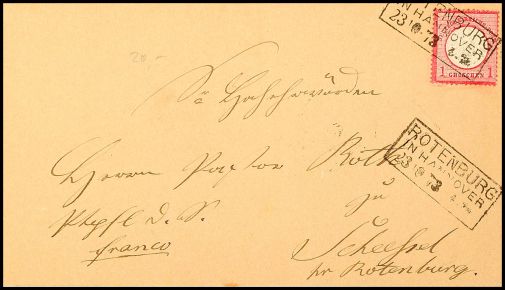 ROTENBURG
IN HANNOVER
23 10 73
1 GROSCHEN 1
20,-
Sr Hochehrwürden
Herrn Pastor
zu
franco
Scheessel
br Rotenburg.
ROTENBURG
IN HANNOVER
23 10 73